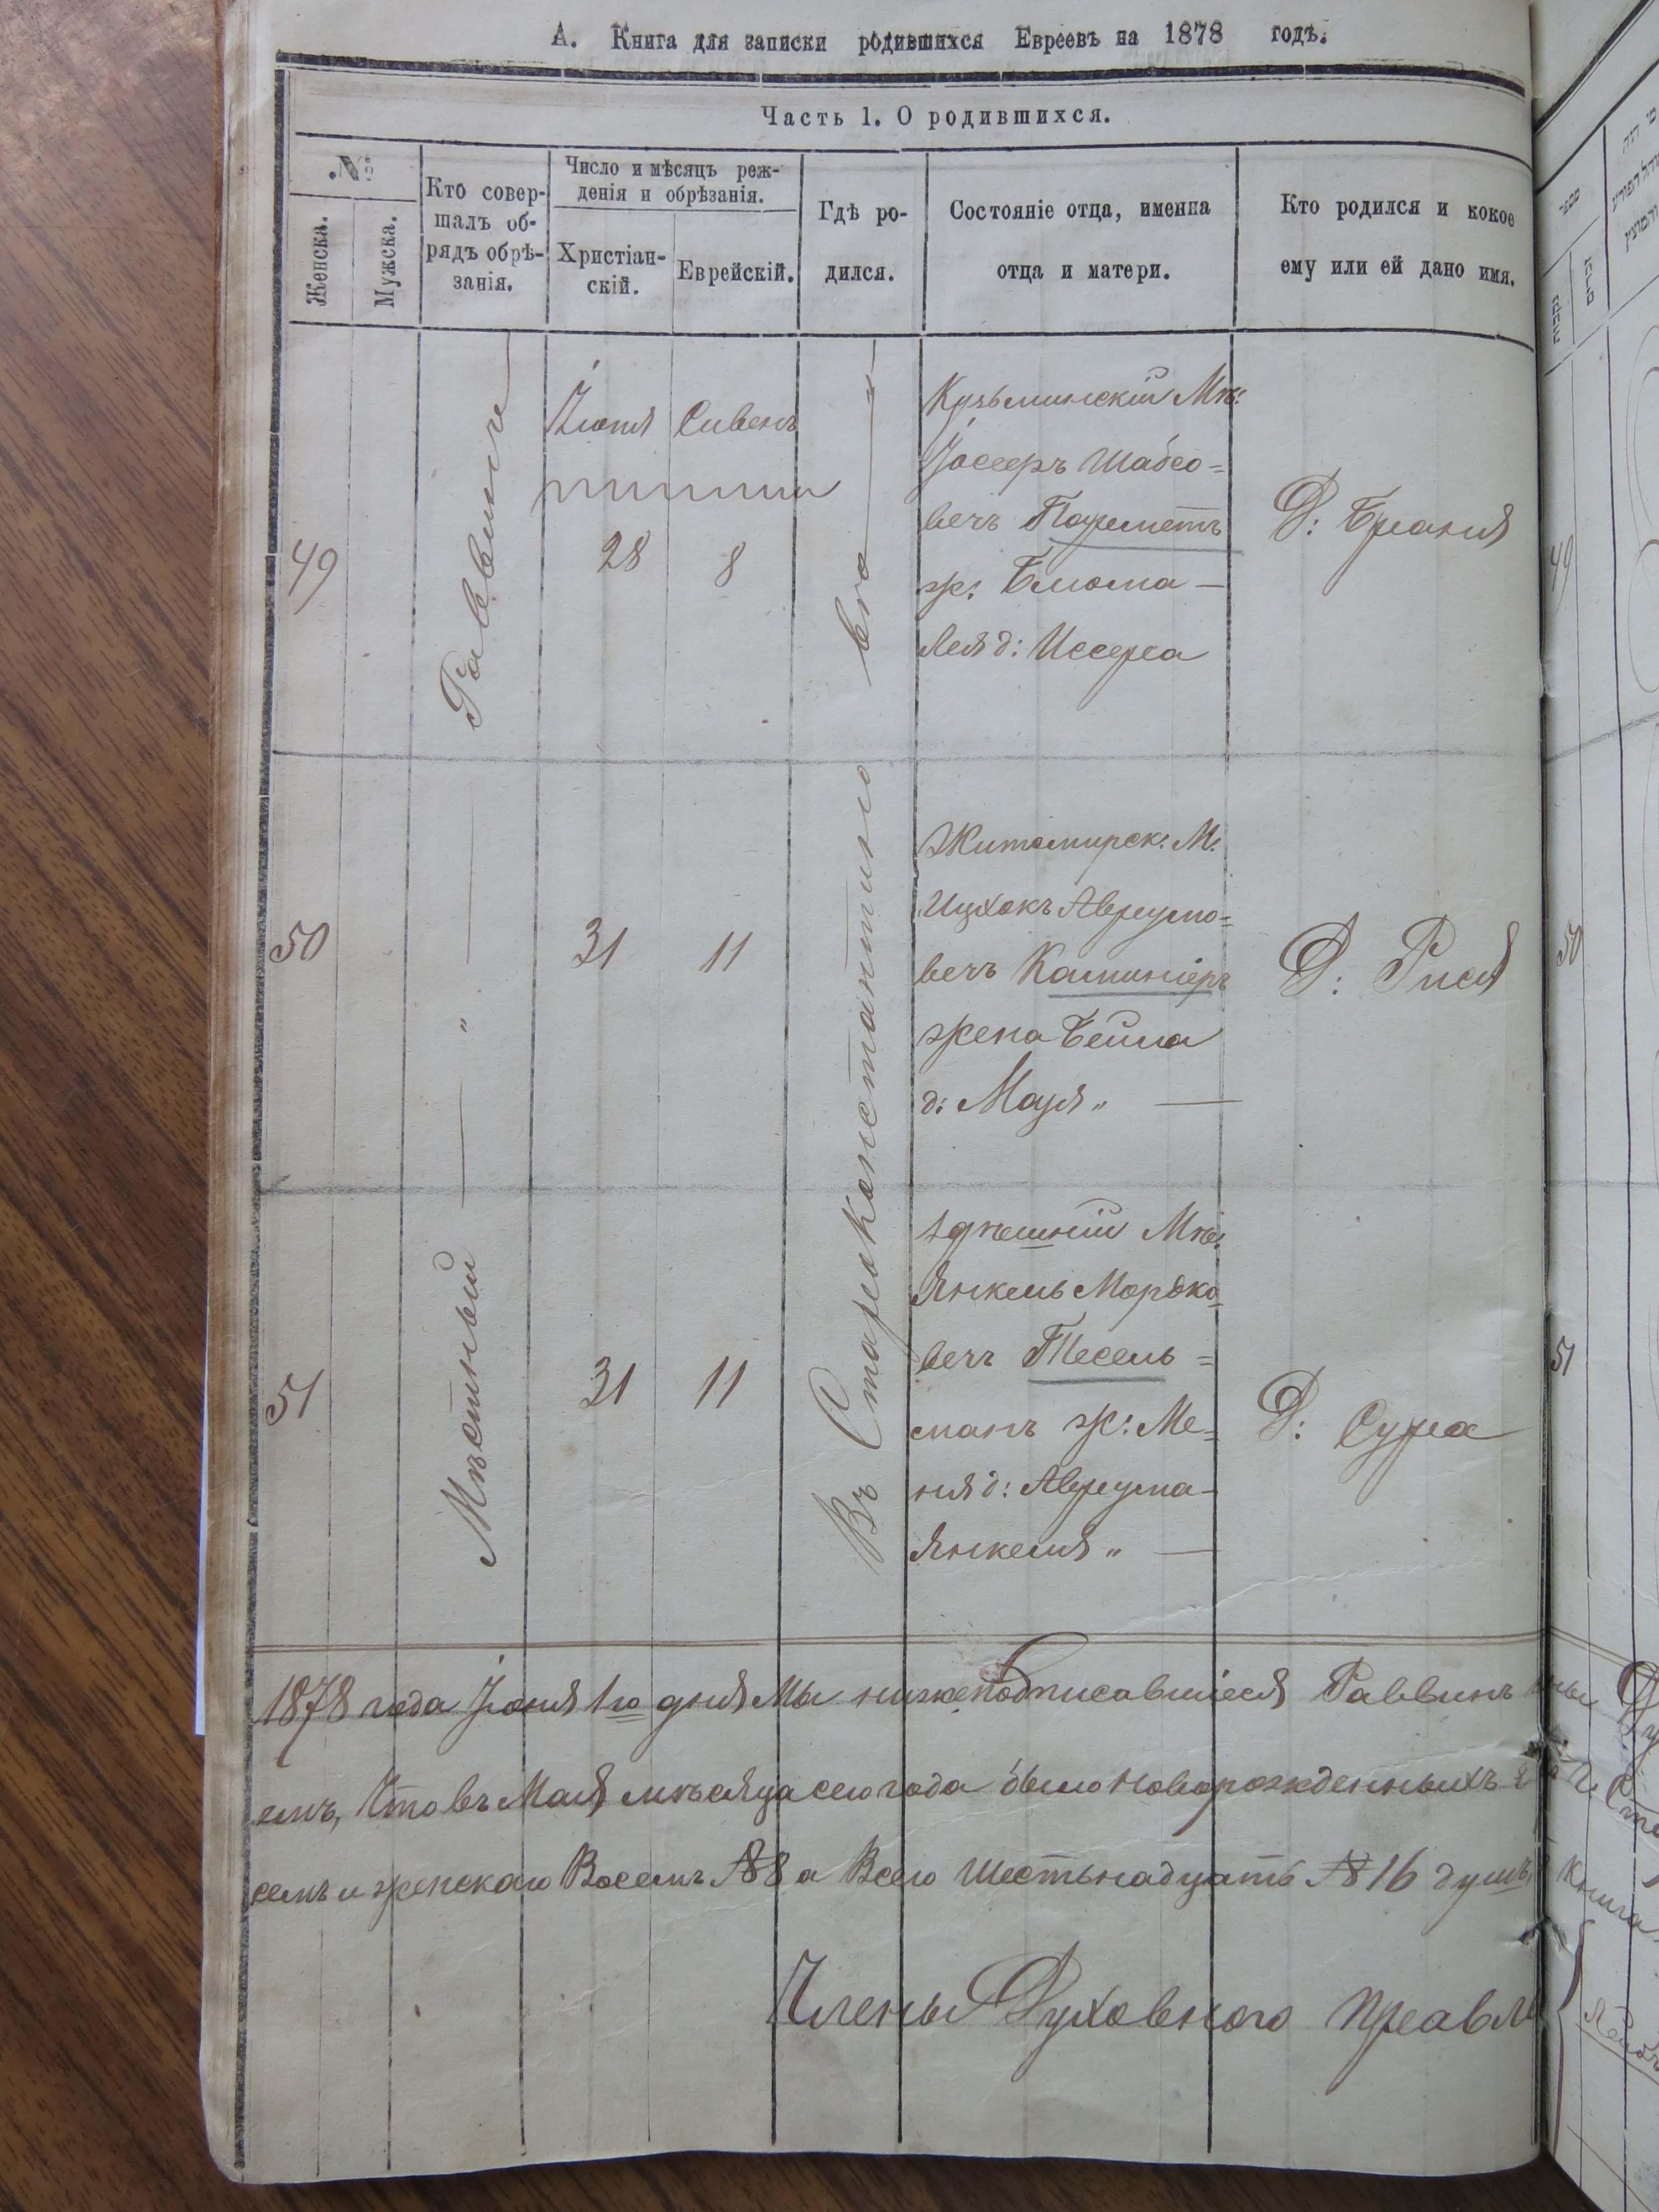 А. Книга для записки родившихся Евреевъ на 1878 годъ.
Часть 1. О родившихся.
№
Женска.
Мужска.
Кто совер-
шалъ об-
рядъ обрѣ-
занія.
Число и мѣсяцъ реж-
денія и обрѣзанія.
Христіан-
скій.
Еврейскій.
Гдѣ ро-
дился.
Состояніе отца, именна
отца и матери.
Кто родился и кокое
ему или ей дано имя.
Мѣстный — " — Раввинъ
Въ Староконстантино
во
49
Сивенъ
28 8
Кузьминскій Мѣ:
Іосеръ Шабсо=
вечъ
ж: Блюма —
Лея д: Иссера
Д: Браня
50
31 11
Житомирск: М:
Ицхокъ Аврумо=
вечъ Каминіеръ
жена Бейла
д: "
Д: Рися
51
31 11
здѣшній Мѣ:
Янкель Мордко=
вечъ Тесель=
манъ ж: Ме=
ня д: Аврума-
Янкеля " —
Д: Сура
1878 года Іюня 1го дня Мы нижеподписавшіеся Раввинъ
емъ, Что въ Мая мѣсяца сего года было новорожденныхъ
семъ и женского Восемъ № 8 а Всего шестьнадцать № 16 душъ
Члены Духовного Правле
49
50
51
Книга